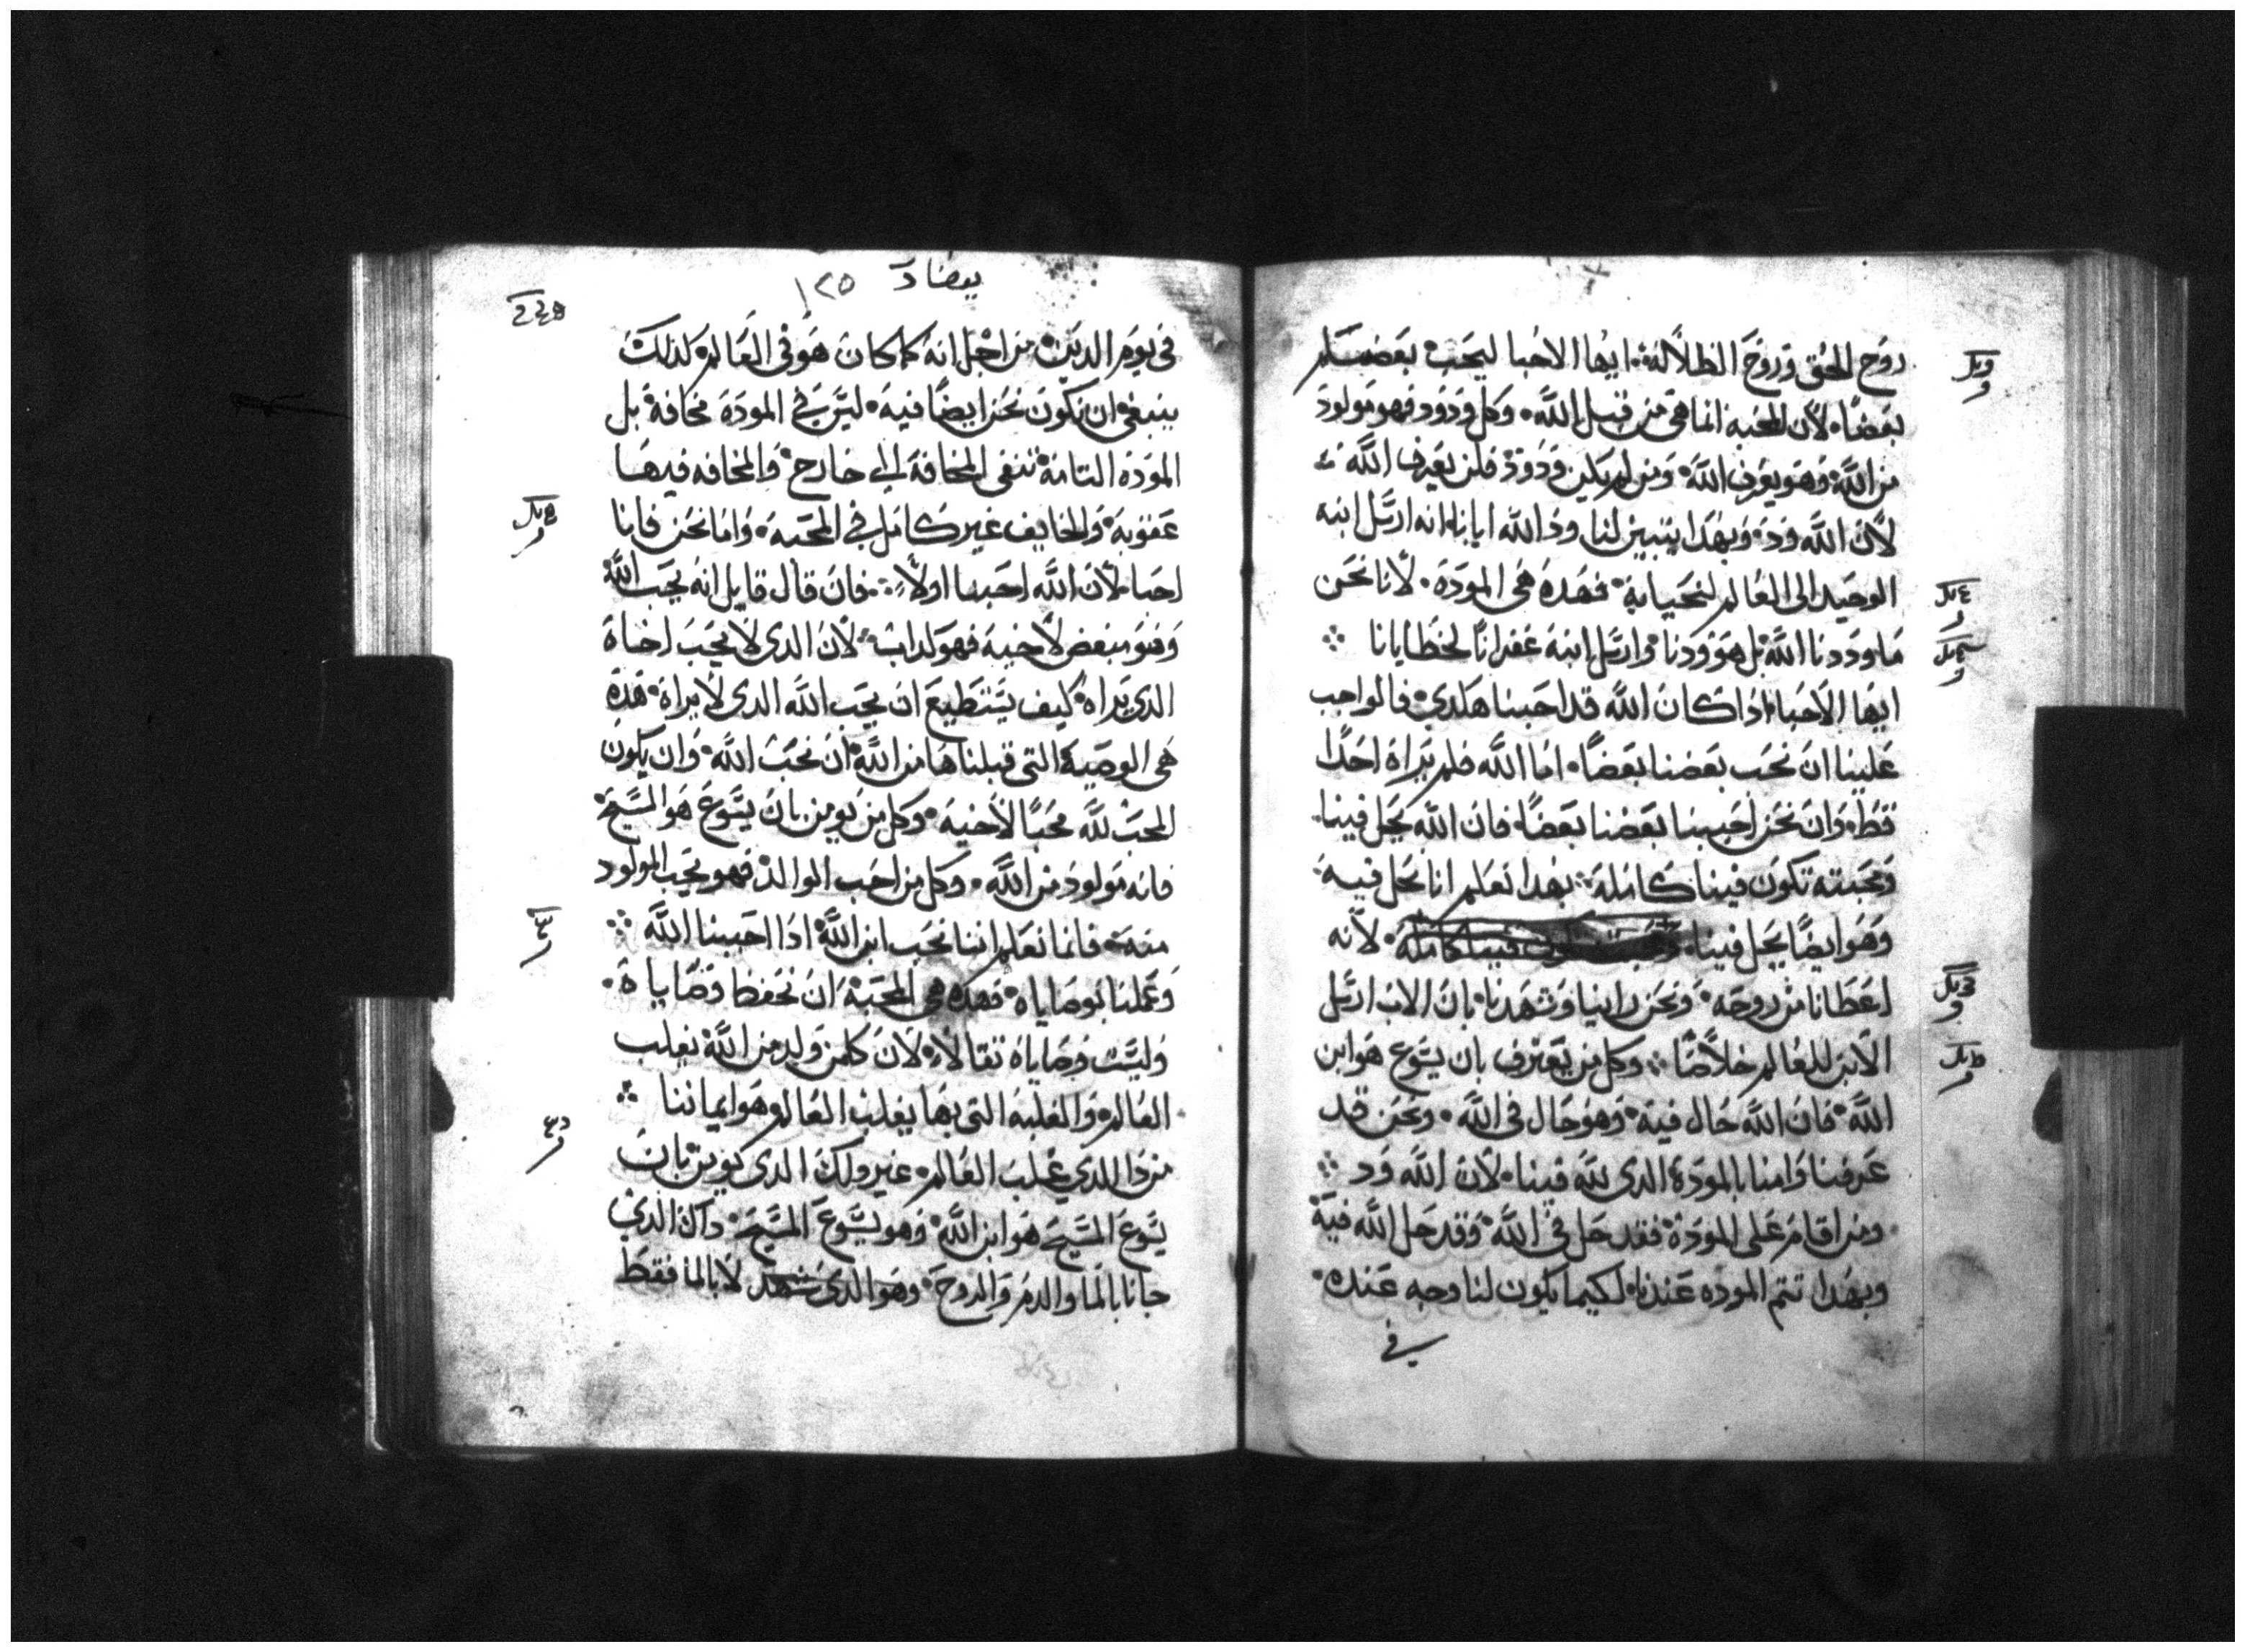 روح الحق وروح الظلالة ايها الاحبا ليحب بعضكم
بعضا لان المحبة انما هي من قبل الله وكل ودود فهو مولود
من الله وهو يعرف الله ومن لم يكن ودود فلن يعرف الله
لان الله ود وبهدا يتبين لنا ود الله ايانا انه ارسل ابنه
الوحيد الى العالم لنحيا به فهده هي المودة لانا نحن
ما وددنا الله بل هو وودنا وارسل ابنه غفرانا لخطايانا
ايها الاحبا ادا كان الله قد احبنا هكدي فالواجب
علينا ان نحب بعضنا بعضا اما الله فلم يراه احدا
قط وان نحن احببنا بعضنا بعضا فان الله يحل فينا
ومحبته تكون فينا كاملة بهدا نعلم انا نحل فيه
وهو ايضا يحل فينا لانه
اعطانا من روحه ونحن راينا وشهدنا بان الاب ارسل
الابن للعالم خلاصا وكل من يعترف بان يسوع هو ابن
الله فان الله حال فيه وهو حال في الله ونحن قد
عرفنا وامنا بالمودة الدى لله فينا لان الله ود
ومن اقام على المودة فقد حل في الله وقد حل الله فيه
وبهدا تتم الموده عندنا لكيما يكون لنا وجه عنده
في
١٢٥
في يوم الدين من اجل انه كما كان هو في العالم كدلك
ينبغي ان نكون نحن ايضا فيه ليس في المودة مخافة بل
المودة التامة تنفى المخافة الى خارج والمخافه فيها
عقوبة والخايف غير كامل في المحبة واما نحن فانا
احبا لان الله احبنا اولا فان قال قايل انه يحب الله
وهو مبغض لاخيه فهو كداب لان الدى لا يحب اخاه
الدي يراه كيف يستطيع ان يحب الله الدى لا يراه هده
هي الوصية التى قبلناها من الله ان نحب الله وان يكون
المحب لله محبا لاخيه وكل من يومن بان يسوع هو المسيح
فانه مولود من الله وكل من احب الوالد فهو يحب المولود
منه فانما نعلم اننا نحب ابن الله ادا احببنا الله
وعملنا بوصاياه فهده هي المحبة ان نحفظ وصاياه
وليست وصاياه ثقالا لان كلمن ولد من الله يغلب
العالم والغلبه التى بها يغلب العالم هو ايماننا
من دا الدي يغلب العالم غير ولك الدى يومن بان
يسوع المسيح هو ابن الله وهو يسوع المسيح داك الدي
جانا بالما والدم والروح وهو الدى شهد لا بالما فقط